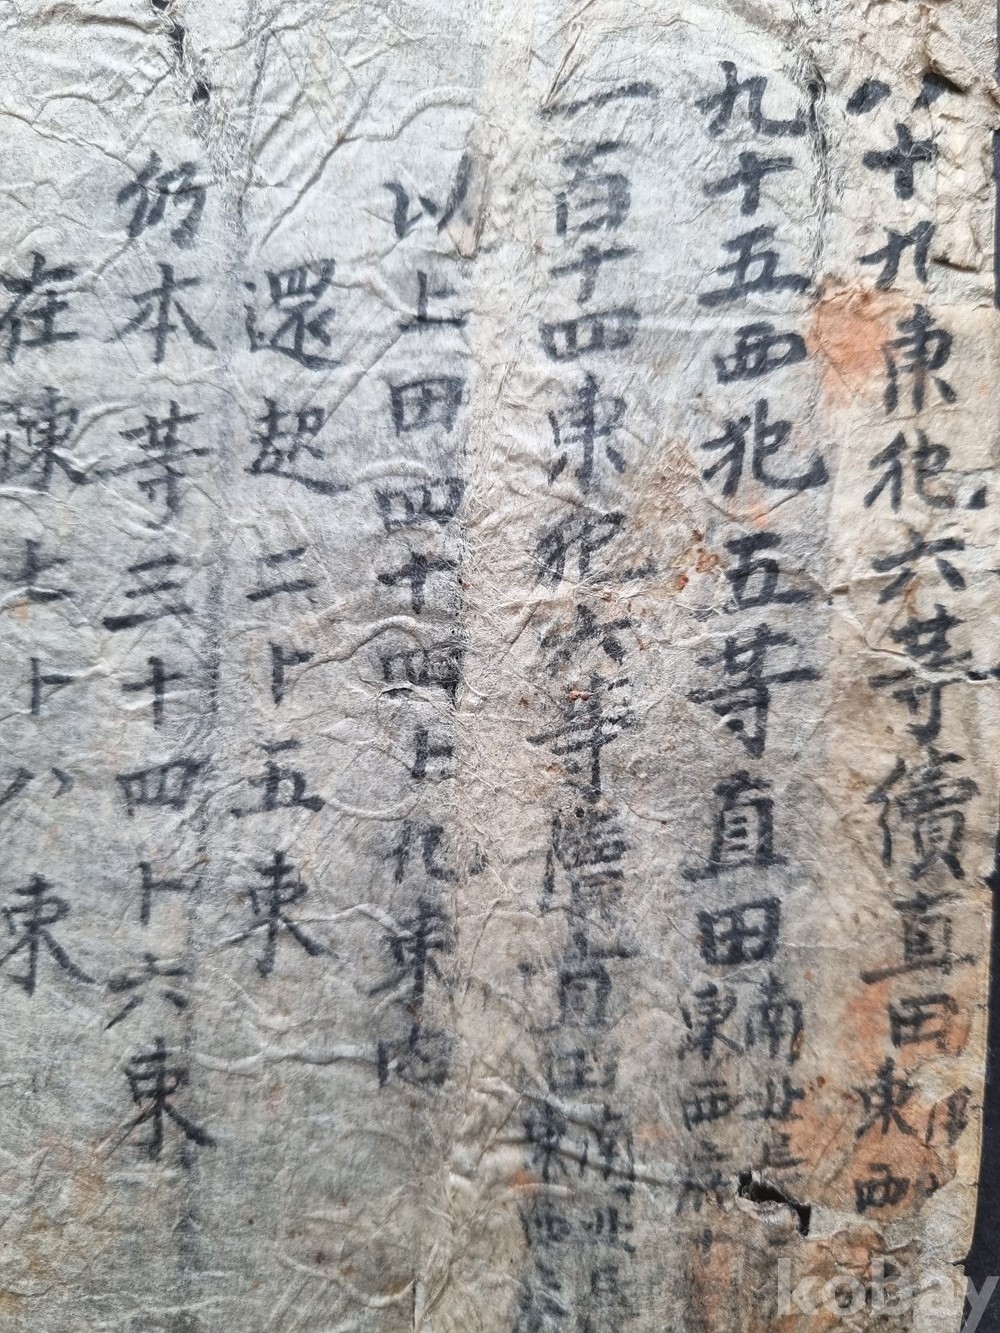 八十九東犯六等續直田東西
九十五西犯五等直田南北長
東西
一百十四東犯六等 直田南北長
東西
以上田四十四卜九束內
還起二卜五束
仍本等三十四卜六束
在陳七卜八束
kobay